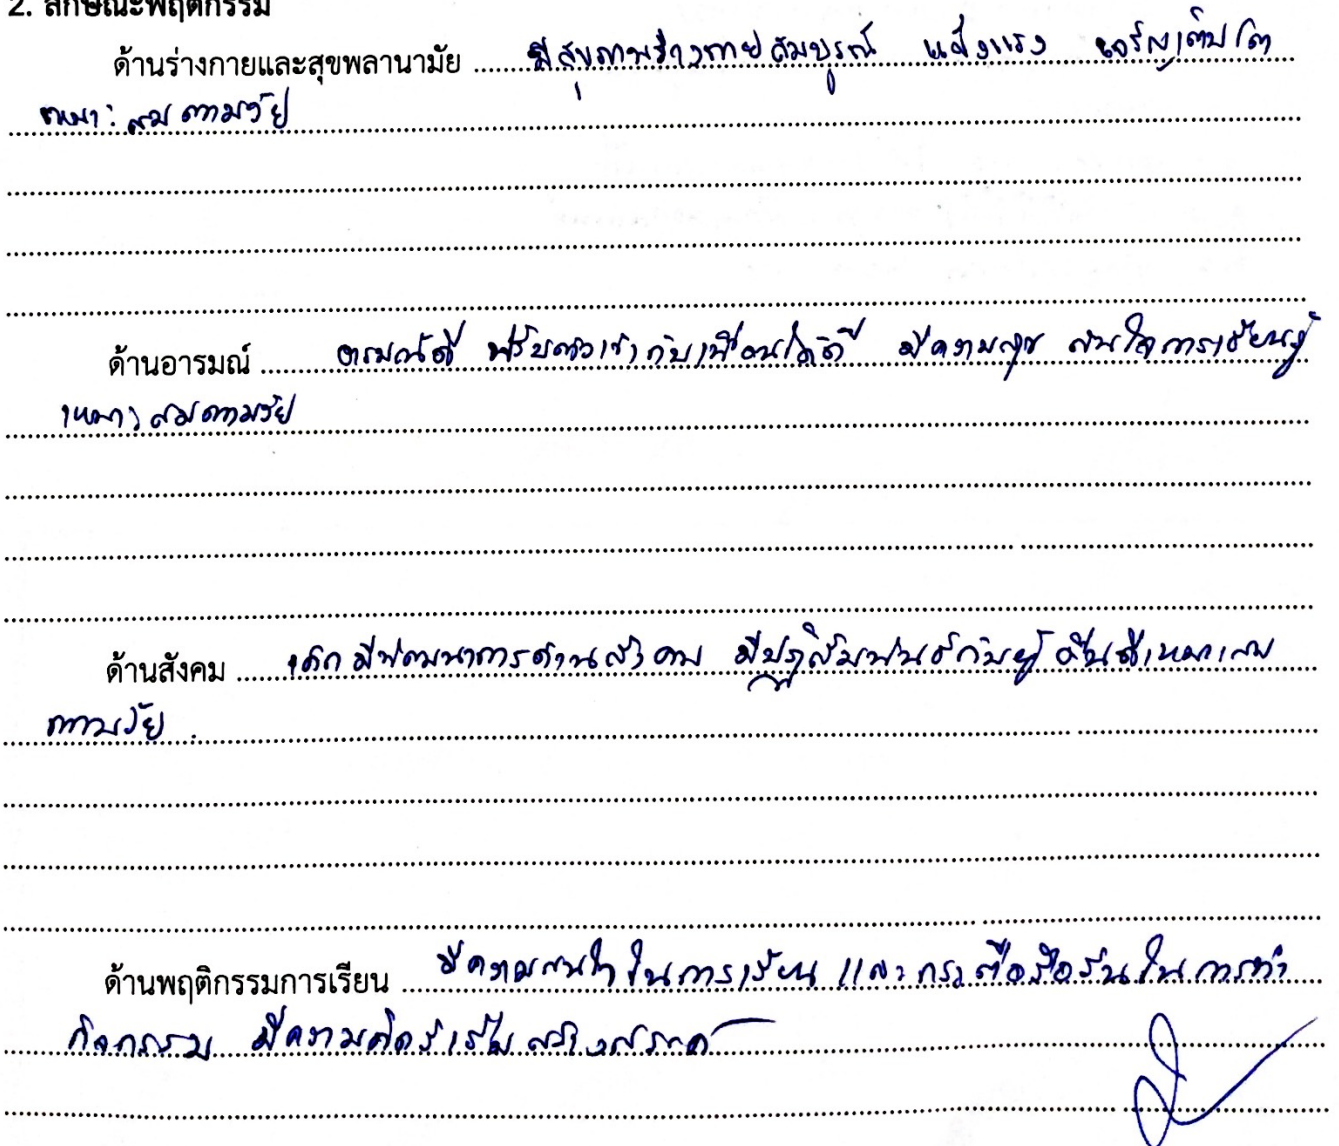 2. ลักษณะพฤติกรรม
ด้านร่างกายและสุขพลานามัย มีสุขภาพร่างกายสมบูรณ์ แข็งแรง เจริญเติบโต
เหมาะสมตามวัย
ด้านอารมณ์ อารมณ์ดี ปรับตัวเข้ากับเพื่อนได้ดี มีความสุข สนใจการเรียนรู้
เหมาะสมตามวัย
ด้านสังคม เด็กมีพัฒนาการด้านสังคม มีปฏิสัมพันธ์กับผู้อื่นดีเหมาะสม
ตามวัย
ด้านพฤติกรรมการเรียน มีความสนใจในการเรียน และกระตือรือร้นในการทำ
กิจกรรม มีความคิดริเริ่มสร้างสรรค์